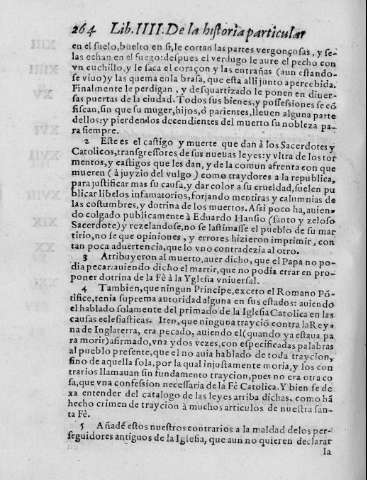 264 Lib. IIII. De la historia particular
en el suelo, buelto en si, le cortan las partes vergonçosas, y se-
las echan en el fuego: despues el verdugo le aure el pecho con
vn cuchillo, y le saca el coraçon y las entrañas (aun estando-
se viuo) y las quema en la brasa, que esta alli junto apercebida.
Finalmente le perdigan, y desquartizado le ponen en diuer-
sas puertas de la ciudad. Todos sus bienes, y possessiones se cõ
fiscan, sin que su muger, hijos, ó parientes, lleuen alguna parte
dellos: y pierden los decendientes del muerto su nobleza pa-
ra siempre.
2 Este es el castigo y muerte que dan à los Sacerdotes y
Catolicos, transgressores de sus nueuas leyes: y vltra de los tor-
mentos, y castigos que les dan, y de la comun afrenta con que
mueren (à juyzio del vulgo) como traydores a la republica,
para justificar mas su causa, y dar color a su crueldad, suelen pu
blicar libelos infamatorios, forjando mentiras y calumnias de
las costumbres, y dotrina de los muertos. Assi poco ha, auien-
do colgado publicamente à Eduardo Hansio (santo y zeloso
Sacerdote) y rezelandose, no se lastimasse el pueblo de su mar-
tirio, no se que opiniones, y errores hizieron imprimir, con
tan poca aduertencia, que lo vno contradezia al otro.
3 Atribuyeron al muerto, auer dicho, que el Papa no po-
dia pecar: auiendo dicho el martir, que no podia errar en pro-
poner dotrina de la Fè à la Yglesia vniuersal.
4 Tambien, que ningun Principe, exceto el Romano Põ-
tifice, tenia suprema autoridad alguna en sus estados: auiendo
el hablado solamente del primado de la Iglesia Catolica en las
causas eclesiasticas. Iten, que ninguna trayciõ contra la Reyna
na de Inglaterra, era pecado, auiendo el (quando ya estaua pa
ra morir) afirmado, vna y dos vezes, con especificadas palabras
al pueblo presente, que el no auia hablado de toda traycion,
sino de aquella sola, por la qual injustamente moria, y los con
trarios llamauan sin fundamento traycion, pues no era otra co
sa, que vna confession necessaria de la Fè Catolica. Y bien se de
xa entender del catalogo de las leyes arriba dichas, como hà
hecho crimen de traycion à muchos articulos de nuestra san-
ta Fè.
5 Añadẽ estos nuestros contrarios a la maldad de los per-
seguidores antiguos de la Iglesia, que aun no quieren declarar
la